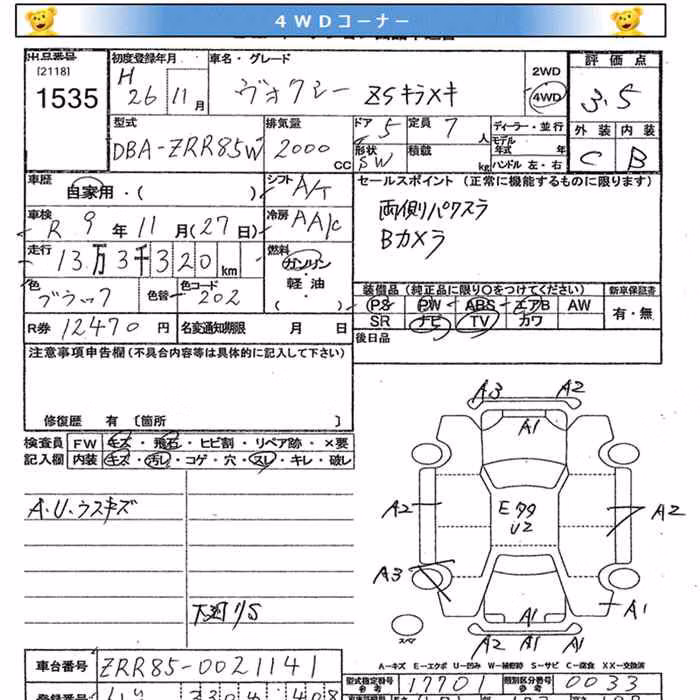 4WDコーナー
出品番号
[2118]
1535
初度登録年月
H
26 11月
車名・グレード
ヴォクシー ZSキラメキ
2WD
4WD
評価点
3.5
型式
DBA-ZRR85W
排気量
2000 CC
ドア 5
形状 SW
定員 7 人
積載 kg
ディーラー・並行
モデル年式 年
ハンドル 左・右
外装 内装
C B
車歴
自家用・( )
シフト A/T
セールスポイント(正常に機能するものに限ります)
両側パワスラ
Bカメラ
車検
R 9年11月(27日)
冷房 AA/C
走行
13万3千320km
燃料
ガソリン
・
軽油
・
( )
色
ブラック
色替
色コード
202
装備品(純正品に限り○をつけてください)
新車保証書
PS PW ABS エアB AW
SR ナビ TV カワ
有・無
R券 12470円
名変通知期限 月 日
後日品
注意事項申告欄(不具合内容等は具体的に記入して下さい)
修復歴 有〔箇所 〕
検査員記入欄
FW キズ・飛石・ヒビ割・リペア跡・×要
内装 キズ・汚レ・コゲ・穴・スレ・キレ・破レ
A.U.ウスキズ
下廻りS
A3 A2
A1
A2
E
U2
A2
A3
A1
A1
A2 A1
スペア
A-キズ E-エクボ U-凹み W-補修跡 S-サビ C-腐食 XX-交換済
車台番号 ZRR85-0021141
型式指定番号 参考 17701
類別区分番号 参考 0033
登録番号